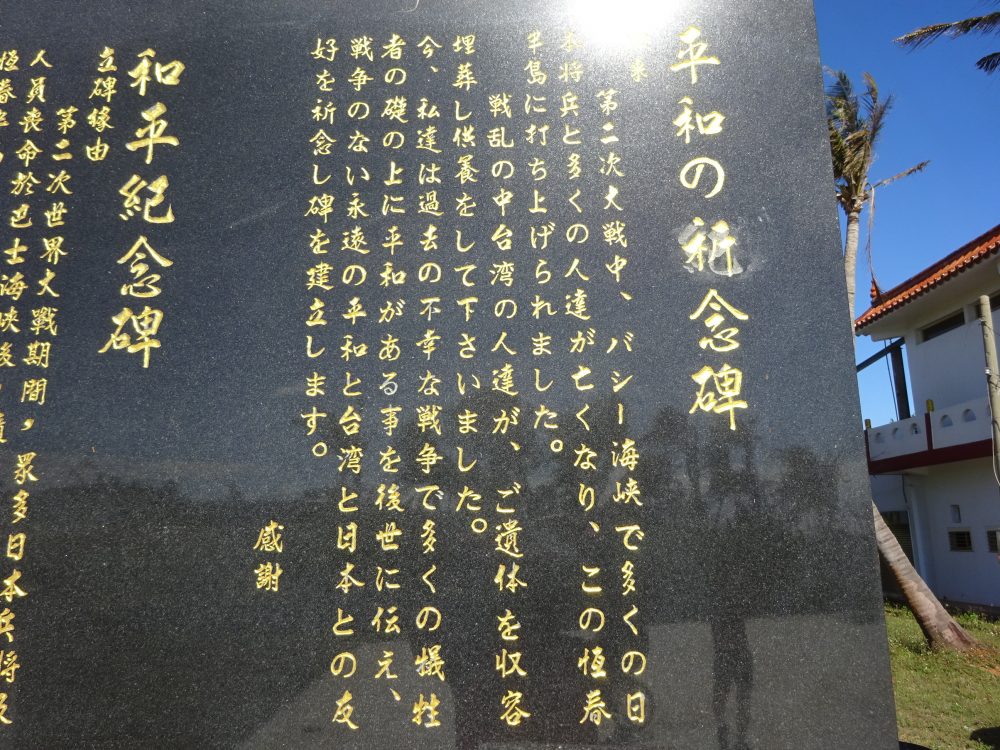 平和の祈念碑
来
第二次大戦中、バシー海峡で多くの日
本将兵と多くの人達が亡くなり、この恒春
半島に打ち上げられました。
戦乱の中台湾の人達が、ご遺体を収容
埋葬し供養をして下さいました。
今、私達は過去の不幸な戦争で多くの犠牲
者の礎の上に平和がある事を後世に伝え、
戦争のない永遠の平和と台湾と日本との友
好を祈念し碑を建立します。
感謝
和平紀念碑
立碑緣由
第二次世界大戰期間，眾多日本兵將及
人員喪命於巴士海峽後，
恆春半